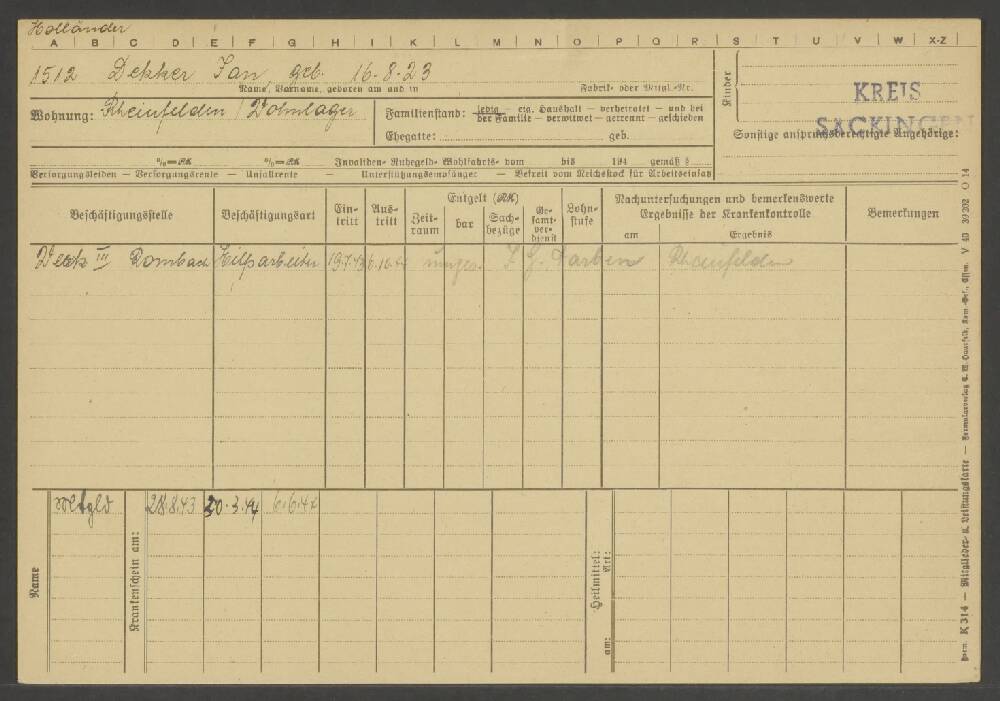 Holländer
A B C D E F G H I K L M N O P Q R S T U V W X-Z
1512 Dekker Jan, geb. 16-8-23
Name, Vorname, geboren am und in Fabrik- oder Mitgl.-Nr.
Kinder
KREIS
SÄCKINGEN
Wohnung: Rheinfelden / Wohnlager
Familienstand: ledig — eig. Haushalt — verheiratet — und bei
der Familie — verwitwet — getrennt — geschieden
Ehegatte: geb.
Sonstige anspruchsberechtigte Angehörige:
%=RM %=RM Invaliden- Ruhegeld- Wohlfahrts- vom bis 194 gemäß §
Versorgungsleiden — Versorgungsrente — Unfallrente — Unterstützungsempfänger — Befreit vom Reichsstock für Arbeitseinsatz
Beschäftigungsstelle Beschäftigungsart Ein-tritt Aus-tritt Zeit-raum Entgelt (RM) bar Sach-bezüge Ge-samt-ver-dienst Lohn-stufe Nachuntersuchungen und bemerkenswerte Ergebnisse der Krankenkontrolle am Ergebnis Bemerkungen
Werk III Rombach Hilfsarbeiter 19.7.43 I. G. Farben Rheinfelden
Name Mtgld Krankenschein am: 28.8.43 20.3.44 6.6.44
Heilmittel: Art: am:
Form. K 314 — Mitglieder- u. Leistungskarte — V 40 39 202 O 14